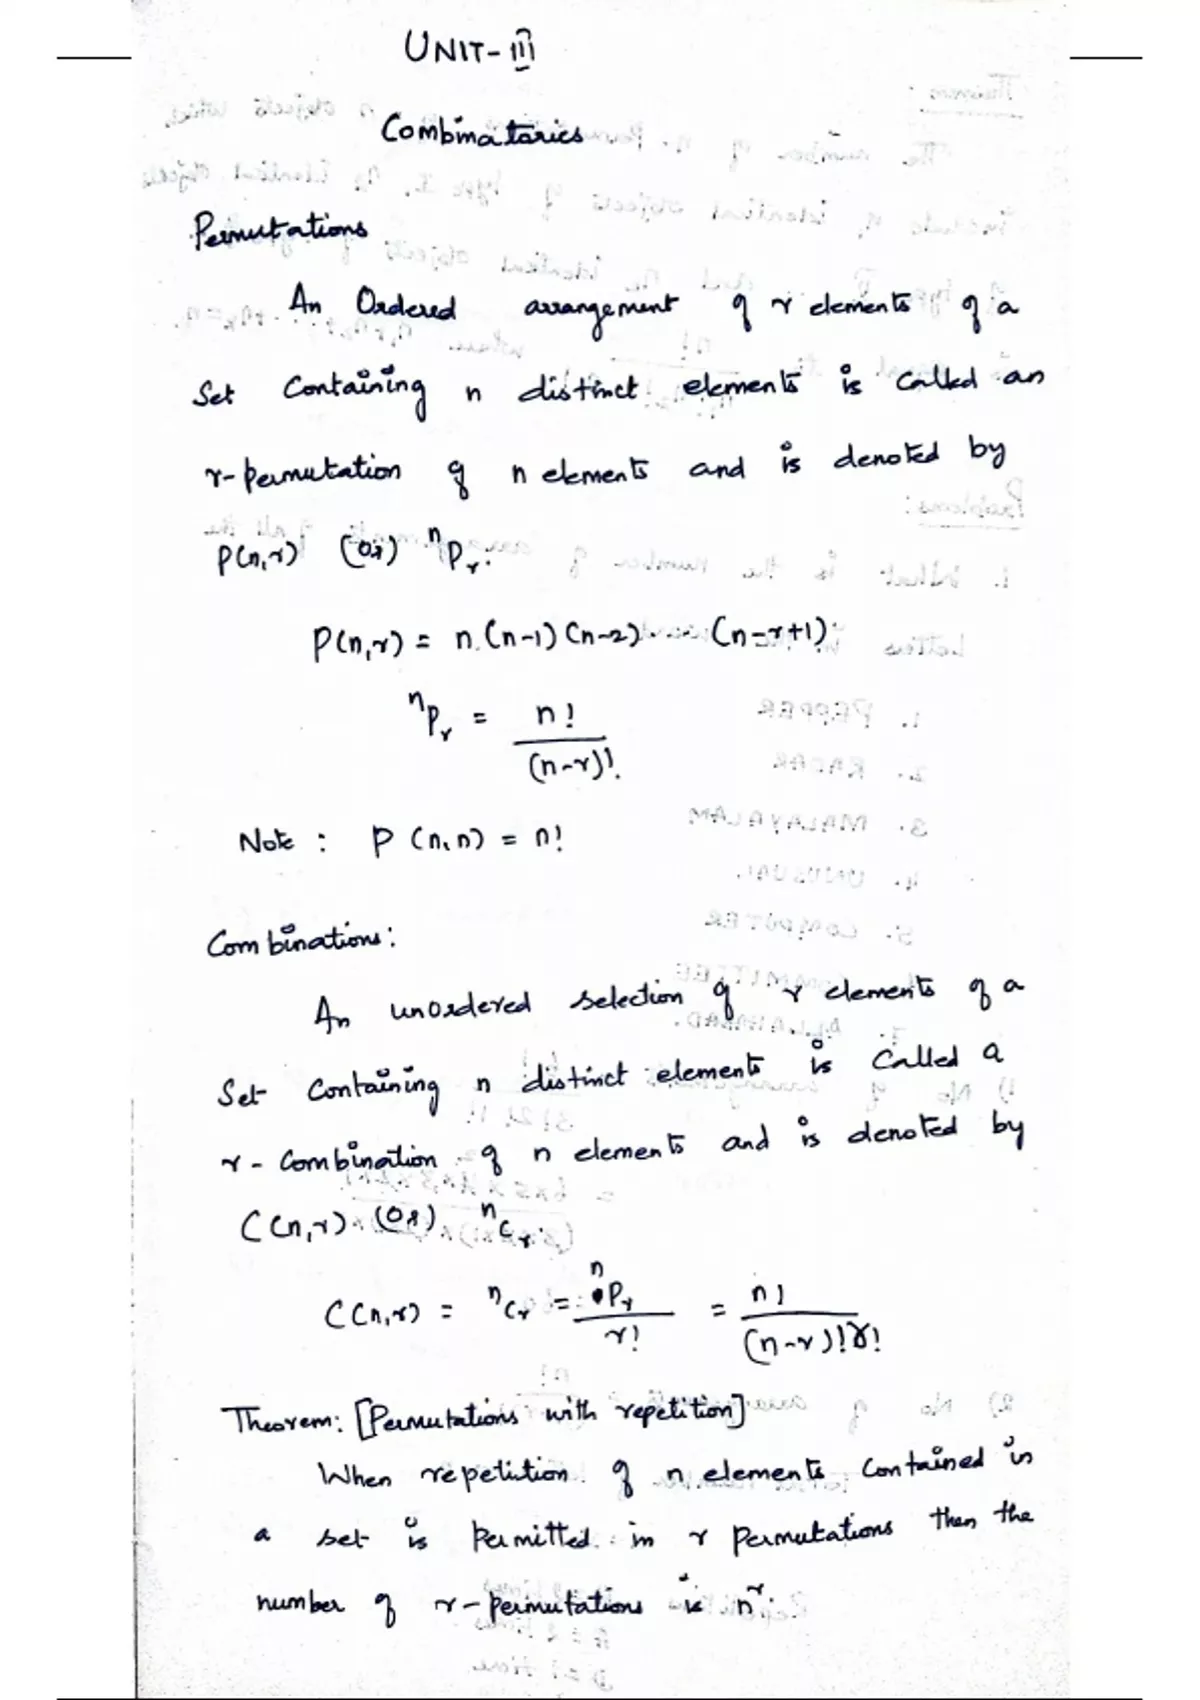 UNIT-III
Combinatarics
Permutations
An Ordered arrangement of r elements of a
Set Containing n distinct elements is called an
r-permutation of n elements and is denoted by
P(n,r) (Or) ⁿPᵣ.
P(n,r) = n.(n-1)(n-2)....(n-r+1)
ⁿPᵣ = n! / (n-r)!
Note : P(n,n) = n!
Combinations:
An unordered selection of r elements of a
Set Containing n distinct elements is Called a
r-Combination of n elements and is denoted by
C(n,r) (Or) ⁿCᵣ.
C(n,r) = ⁿCᵣ = ⁿPᵣ / r! = n! / (n-r)!r!
Theorem: [Permutations with repetition]
When repetition of n elements Contained in
a set is permitted in r permutations then the
number of r-permutations is nʳ.